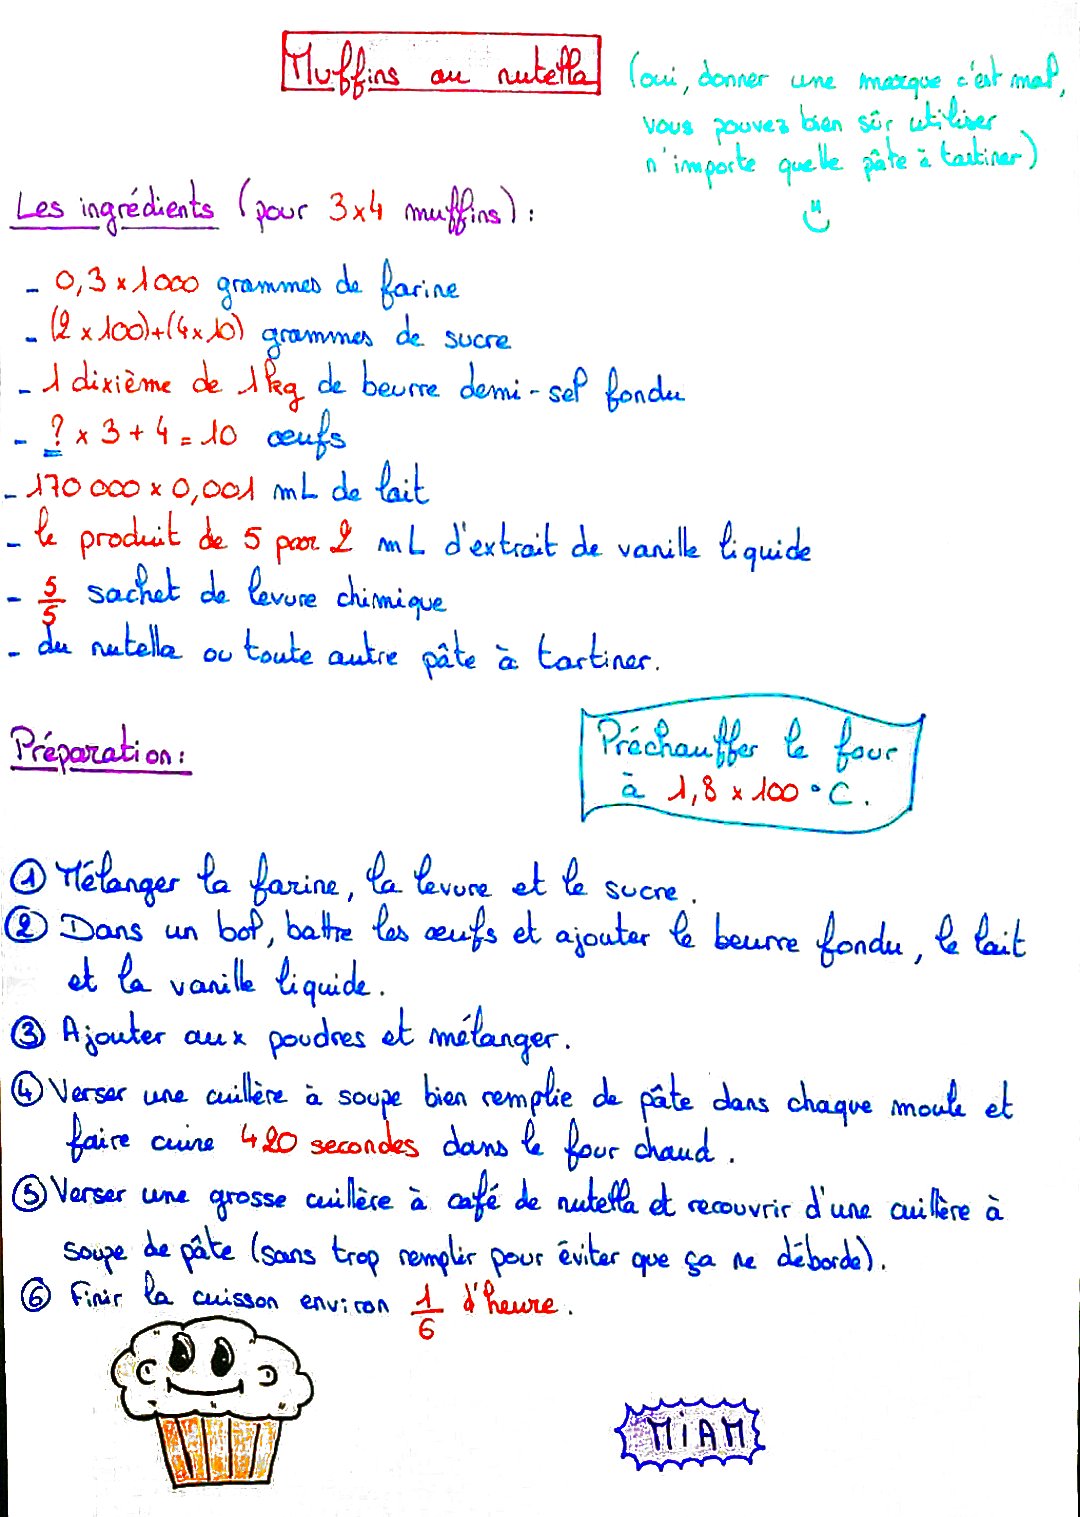 Muffins au nutella
(oui, donner une marque c'est mal,
vous pouvez bien sûr utiliser
n'importe quelle pâte à tartiner)
Les ingrédients (pour 3x4 muffins) :
- 0,3 x 1000 grammes de farine
- (2 x 100)+(4x10) grammes de sucre
- 1 dixième de 1kg de beurre demi-sel fondu
- ? x 3 + 4 = 10 œufs
- 170 000 x 0,001 mL de lait
- le produit de 5 par 2 mL d'extrait de vanille liquide
- 5/5 sachet de levure chimique
- du nutella ou toute autre pâte à tartiner.
Préparation :
Préchauffer le four
à 1,8 x 100 °C.
① Mélanger la farine, la levure et le sucre.
② Dans un bol, battre les œufs et ajouter le beurre fondu, le lait
et la vanille liquide.
③ Ajouter aux poudres et mélanger.
④ Verser une cuillère à soupe bien remplie de pâte dans chaque moule et
faire cuire 420 secondes dans le four chaud.
⑤ Verser une grosse cuillère à café de nutella et recouvrir d'une cuillère à
soupe de pâte (sans trop remplir pour éviter que ça ne déborde).
⑥ Finir la cuisson environ 1/6 d'heure.
MiAM